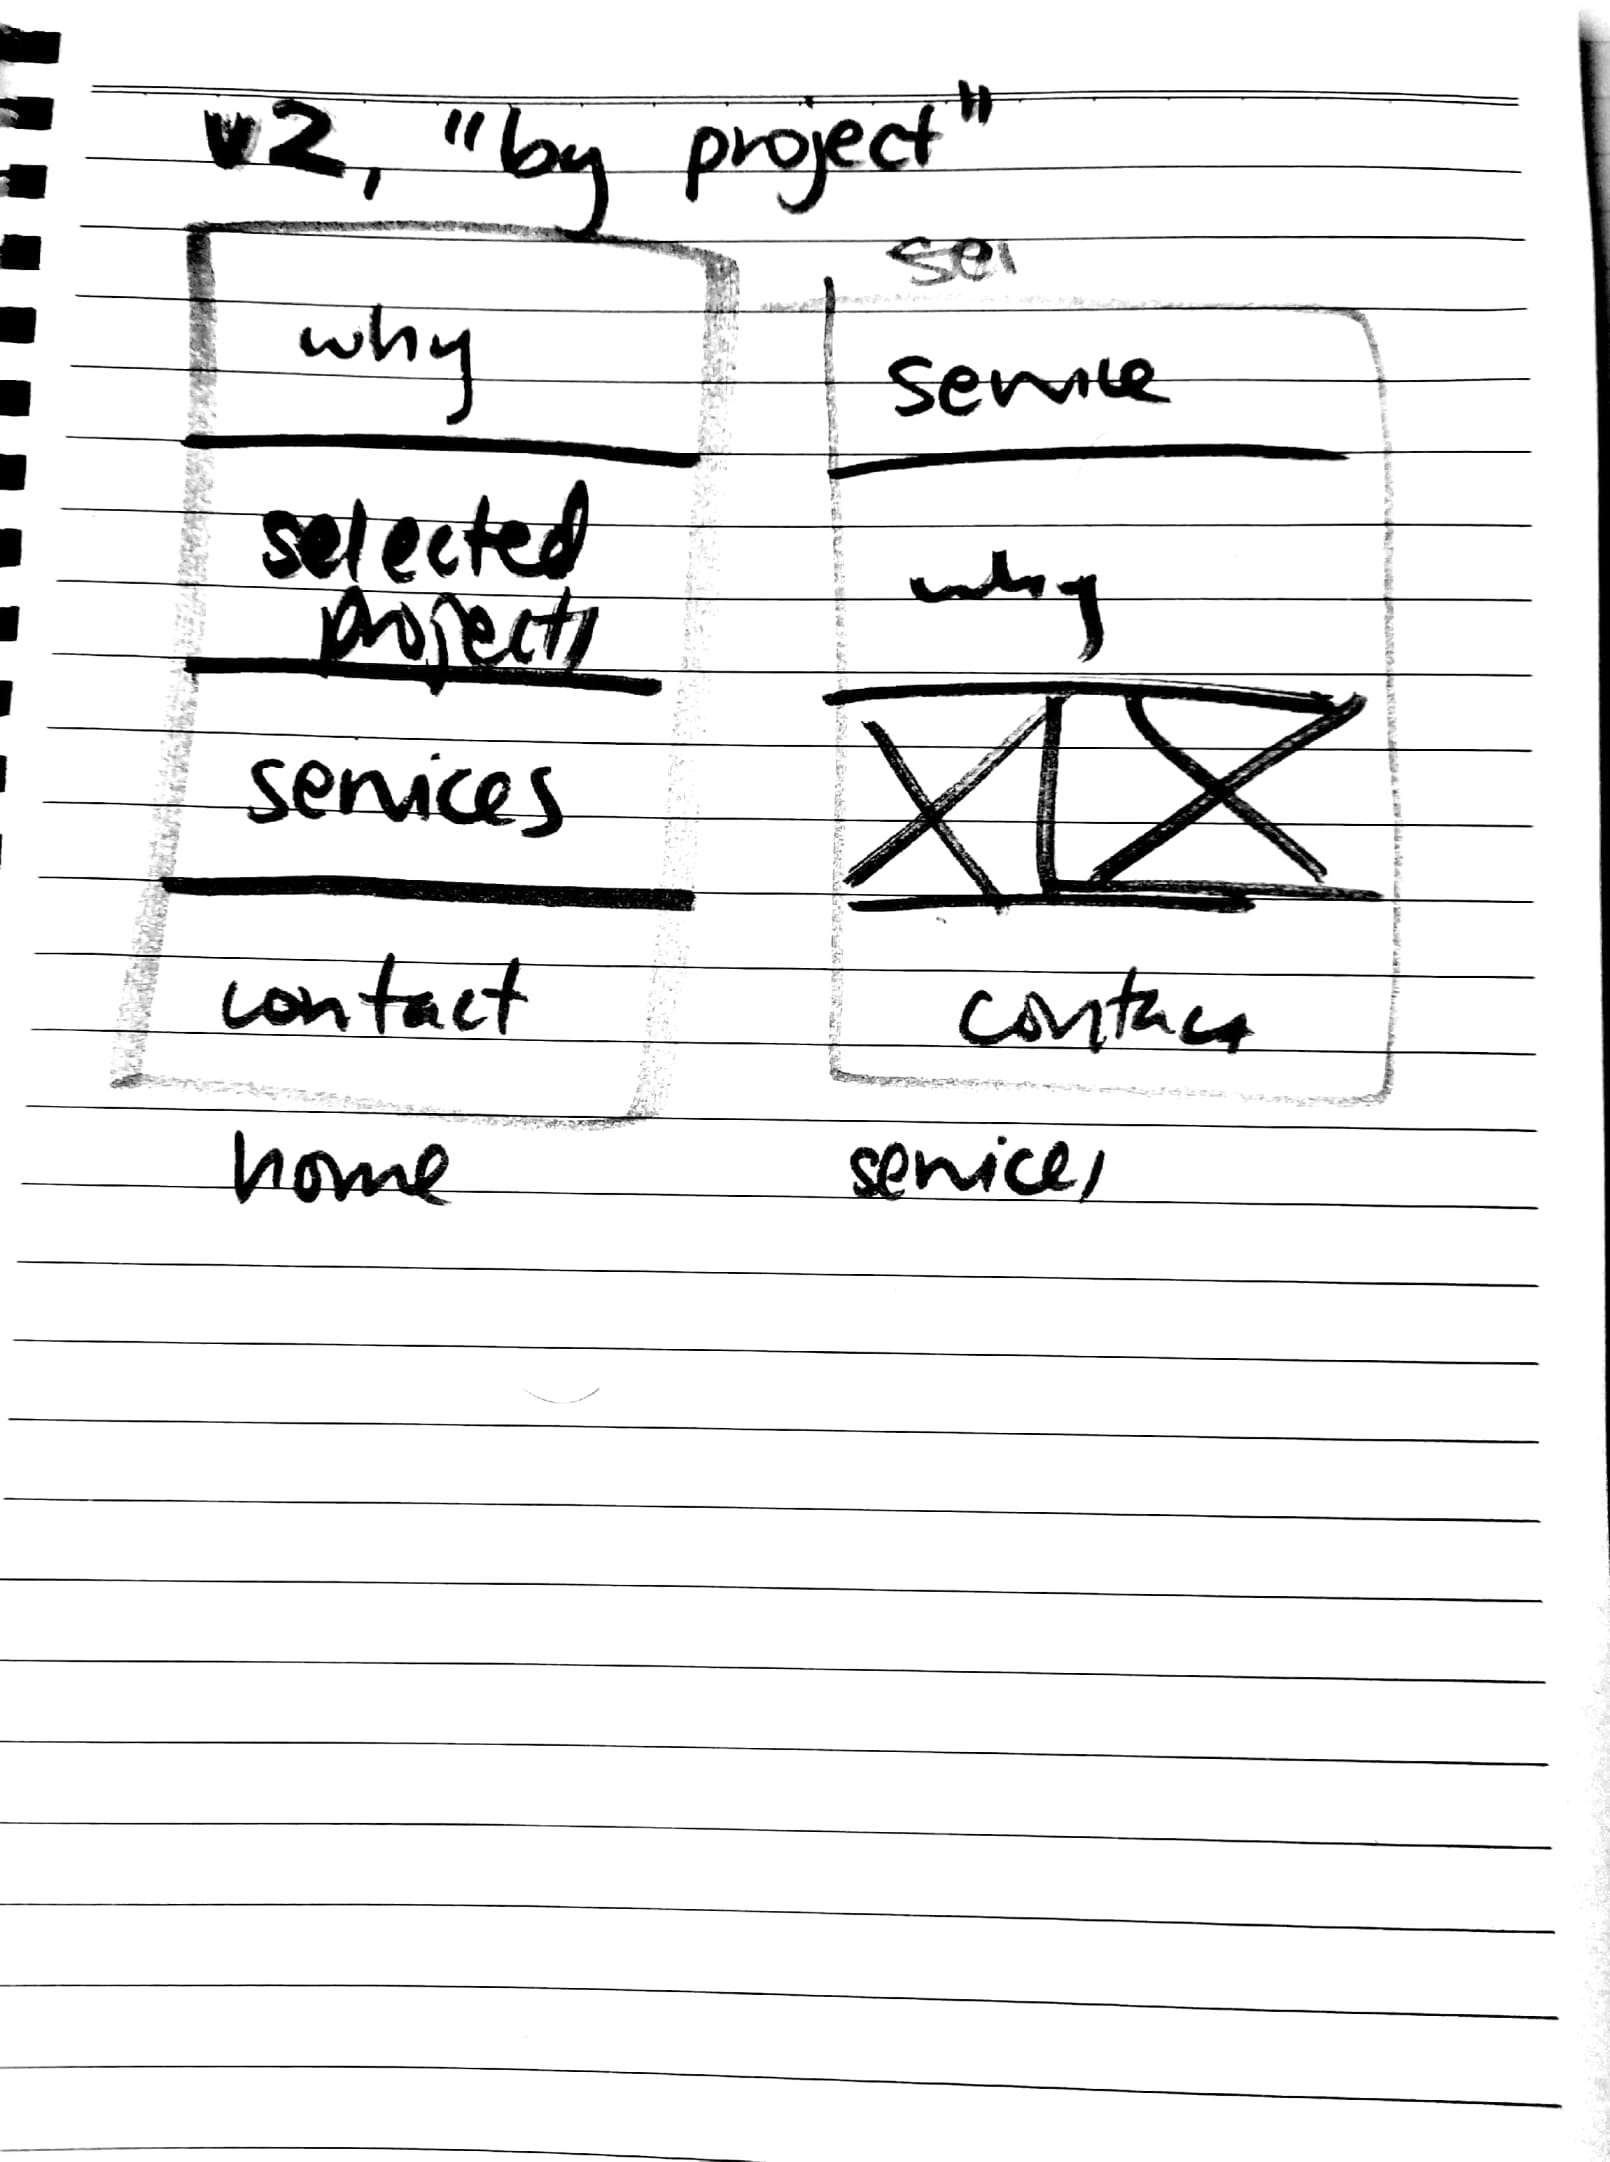 v2, "by project"
why
selected
projects
services
contact
home
ser
service
why
contact
services